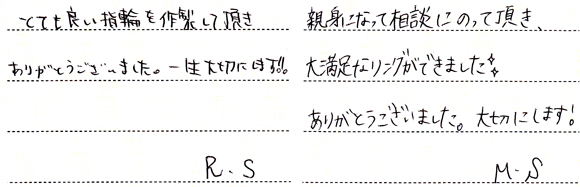 とても良い指輪を作製して頂き
ありがとうございました。一生大切にします!!
R.S
親身になって相談にのって頂き、
大満足なリングができました
ありがとうございました。大切にします!
M.S